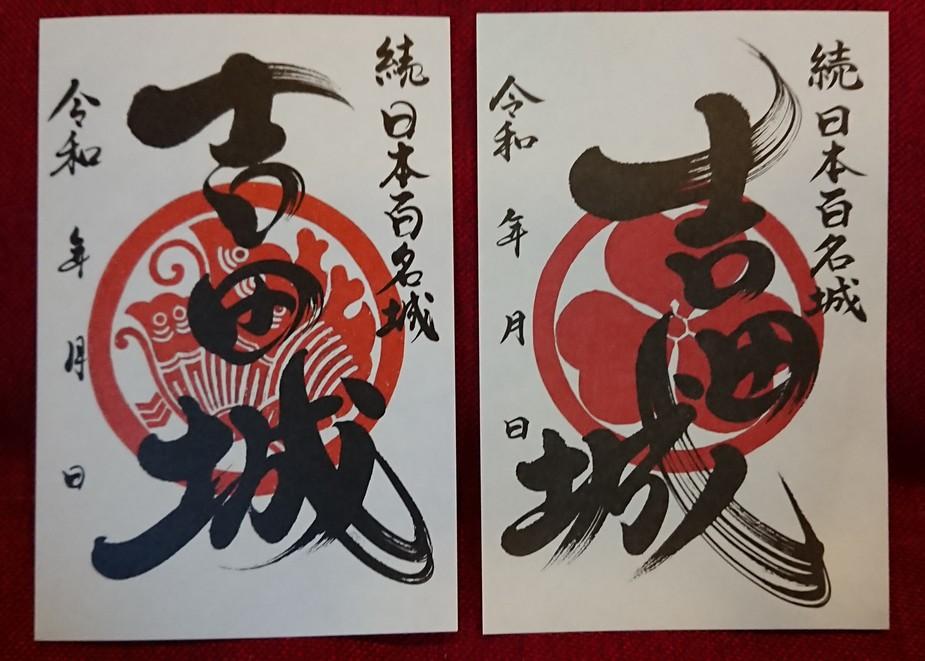 続日本百名城
吉田城
令和 年 月 日
続日本百名城
吉田城
令和 年 月 日